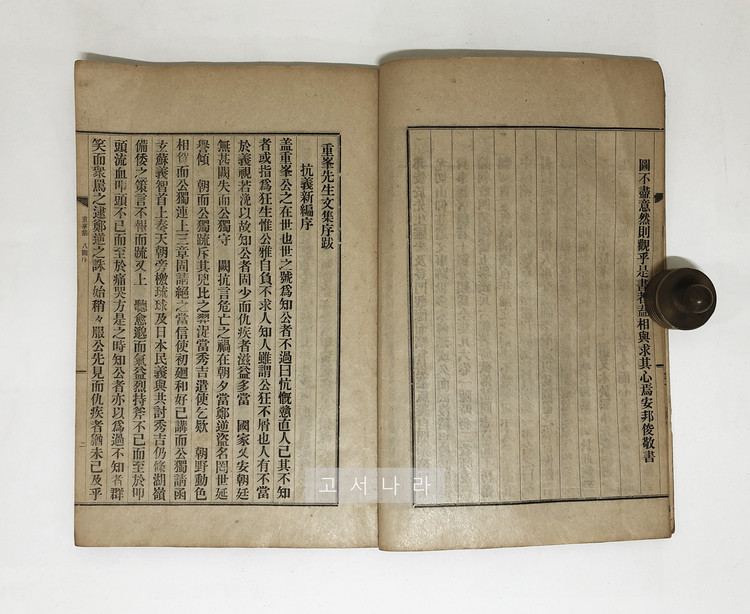 圖不盡意然則觀乎是書者盍相與求其心焉安邦俊敬書
重峯先生文集序跋
抗義新編序
盖重峯公之在世也世之號爲知公者不過曰忼慨戇直人已其不知
者或指爲狂生惟公雅自負不求人知人雖謂公狂不屑也人有不當
於義視若浼以故知公者固少而仇疾者滋益多當 國家乂安朝廷
無甚闕失而公獨守 闕抗言危亡之禍在朝夕當鄭逆盜名罔世廷
譽傾 朝而公獨疏斥其兇比之羿浞當秀吉遣使乞欵 朝野動色
相
而公獨連上三章固請絕之當信使初廻和好已講而公獨請函
玄蘇義智首上奏天朝旁檄琉球及日本民義與共討秀吉仍條湖嶺
備倭之策言不報而疏又上 聽愈邈而氣益烈持斧不已而至於叩
頭流血叩頭不已而至於痛哭方是之時知公者亦以爲過不知者群
笑而衆罵之逮鄭逆之誅人始稍々服公先見而仇疾者猶未已及乎
고서나라